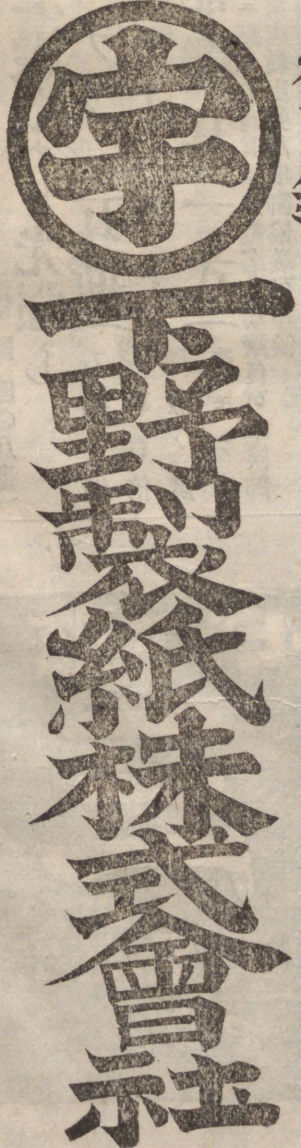 宇
下野製紙株式會社